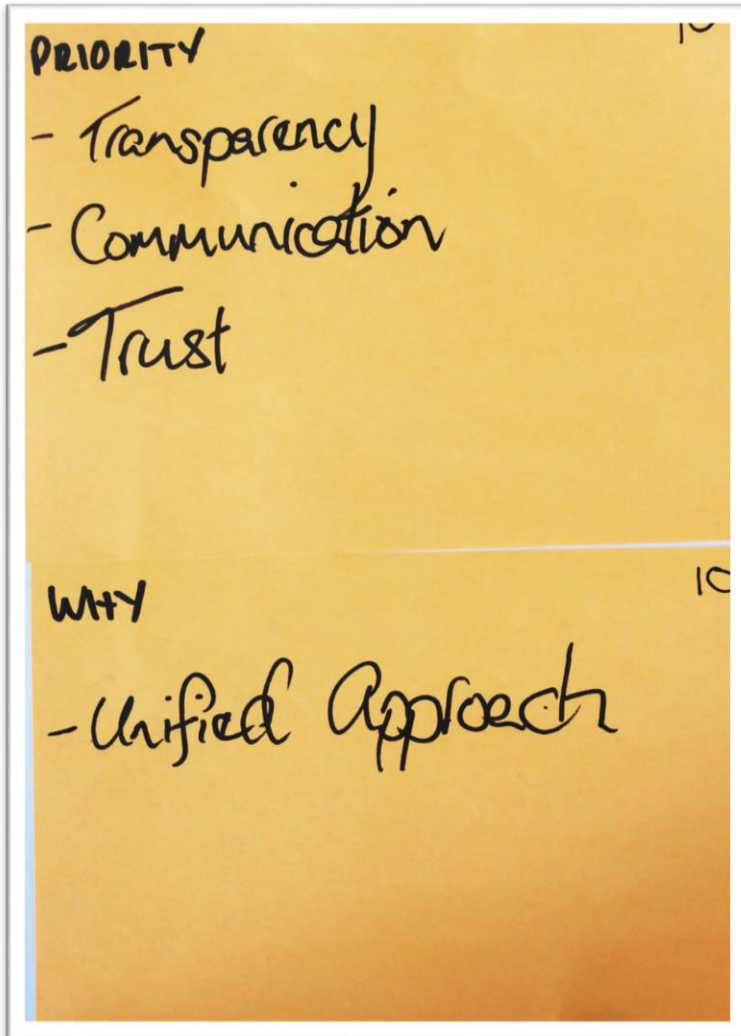 PRIORITY 10
- Transparency
- Communication
- Trust
WHY 10
- Unified Approach